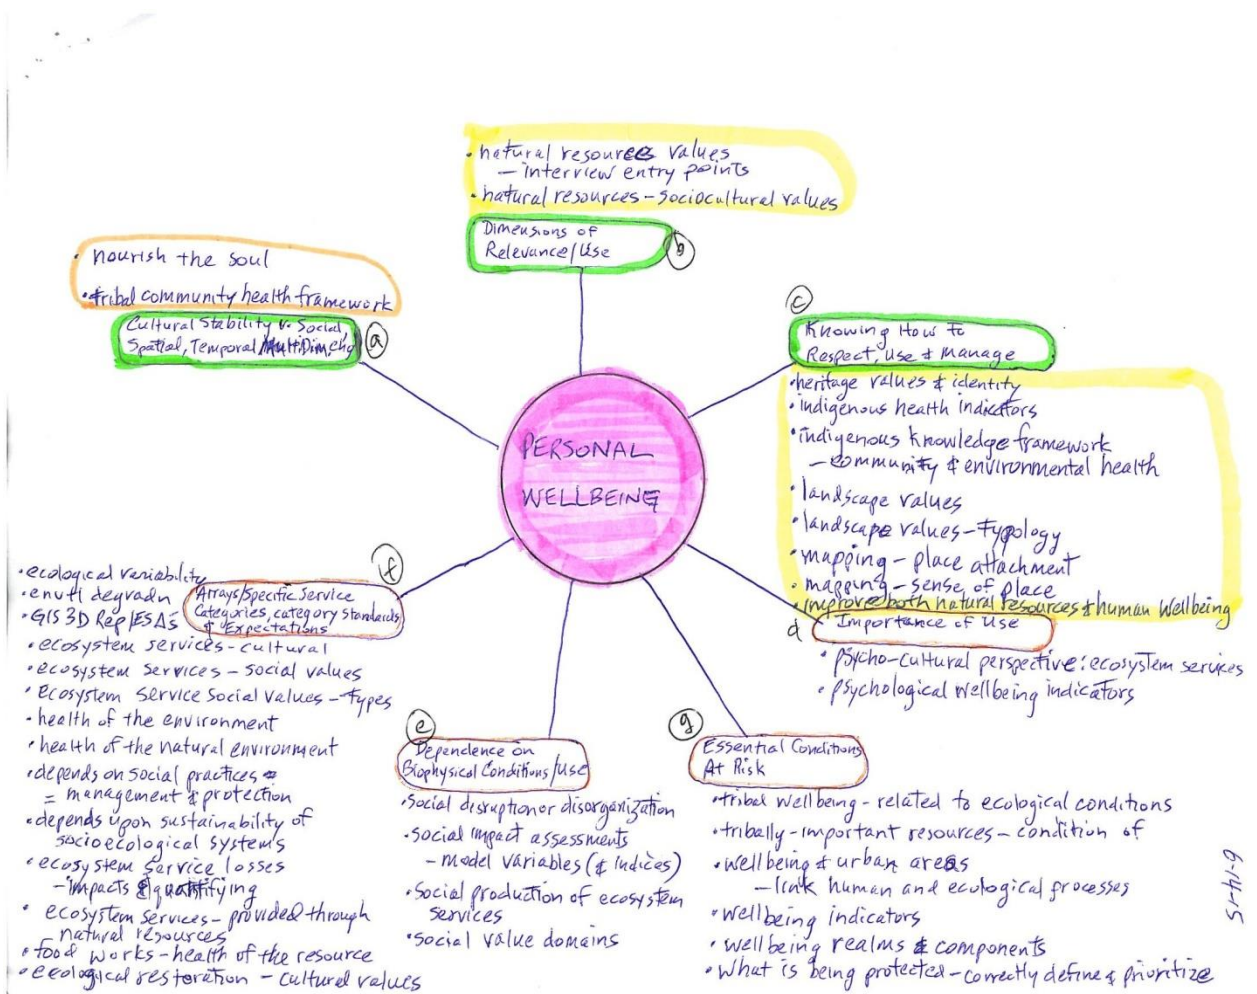 • natural resources values
— interview entry points
• natural resources – sociocultural values
Dimensions of
Relevance/Use
b
• nourish the soul
• tribal community health framework
Cultural Stability v. Social,
Spatial, Temporal, MultiDim,
a
c
Knowing How to
Respect, Use & Manage
• heritage values & identity
• indigenous health indicators
• indigenous knowledge framework
— community & environmental health
• landscape values
• landscape values – typology
• mapping – place attachment
• mapping – sense of place
• improve both natural resources & human wellbeing
d
Importance of Use
• psycho-cultural perspective: ecosystem services
• psychological wellbeing indicators
PERSONAL
WELLBEING
f
Arrays/Specific Service
Categories, category standards
& Expectations
• ecological variability
• envtl degradn
• GIS 3D Rep/ESA's
• ecosystem services – cultural
• ecosystem services – social values
• ecosystem service social values – types
• health of the environment
• health of the natural environment
• depends on social practices
= management & protection
• depends upon sustainability of
socioecological systems
• ecosystem service losses
— impacts & quantifying
• ecosystem services – provided through
natural resources
• food works – health of the resource
• ecological restoration – cultural values
e
Dependence on
Biophysical Conditions/Use
• social disruption or disorganization
• social impact assessments
— model variables (& indices)
• social production of ecosystem
services
• social value domains
g
Essential Conditions
At Risk
• tribal wellbeing – related to ecological conditions
• tribally-important resources – condition of
• wellbeing & urban areas
— link human and ecological processes
• wellbeing indicators
• wellbeing realms & components
• what is being protected – correctly define & prioritize
6-14-15